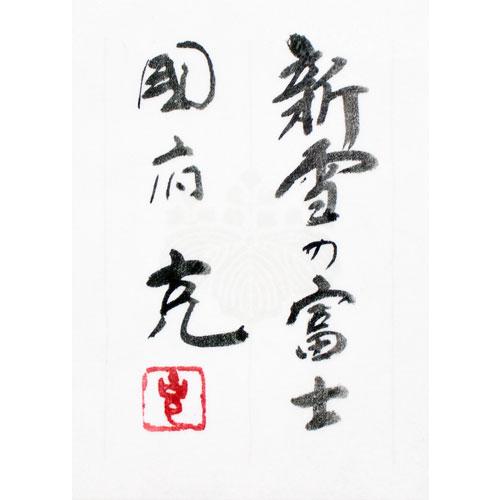 新雪の富士
国府克